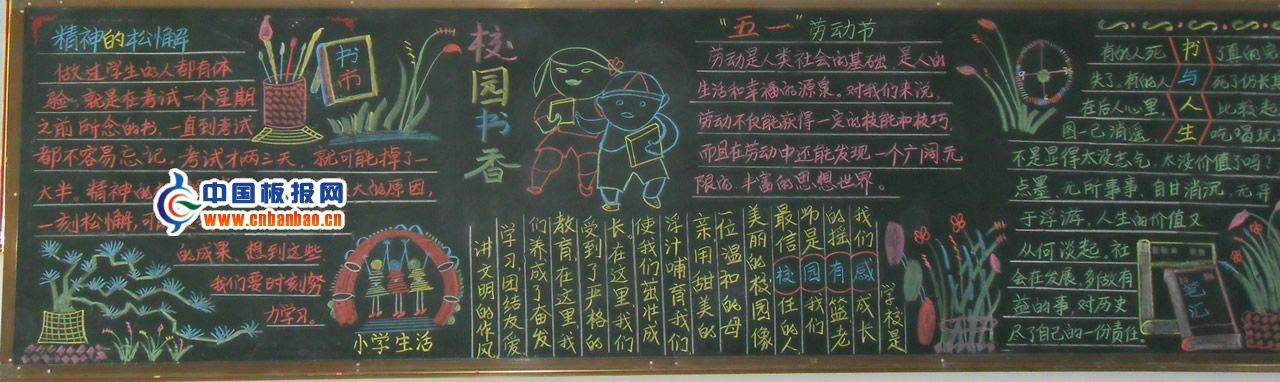 精神的松懈
做过学生的人都有体
验,就是在考试一个星期
之前所念的书,一直到考试
都不容易忘记。考试才两三天,就可能掉了一
大半。精神的 大的原因,
一刻松懈,可
的成果。想到这些
我们要时刻努
力学习。
书
中国板报网
www.cnbanbao.cn
小学生活
校园书香
"五一"劳动节
劳动是人类社会的基础,是人的
生活和幸福的源泉。对我们来说,
劳动不仅能获得一定的技能和技巧,
而且在劳动中还能发现一个广阔无
限而丰富的思想世界。
校园有感
学校是
我们成长
的摇篮老
师是我们
最信任的人
美丽的校园像
一位温和的母
亲,用甜美的
浮汁哺育我们,
使我们茁壮成
长。在这里,我们
受到了严格的
教育,在这里,我
们养成了奋发
学习,团结友爱、
讲文明的作风
书与人生
有的人死了真的完
失了,有的人死了仍长
在后人心里。比较起
图一己消遥,吃喝玩
不是显得太没志气,太没价值了吗?
点墨,无所事事,自甘消沉,无异
于浮游,人生的价值又
从何谈起。社
会在发展,多做有
益的事,对历史
尽了自己的一份责任。
笔记